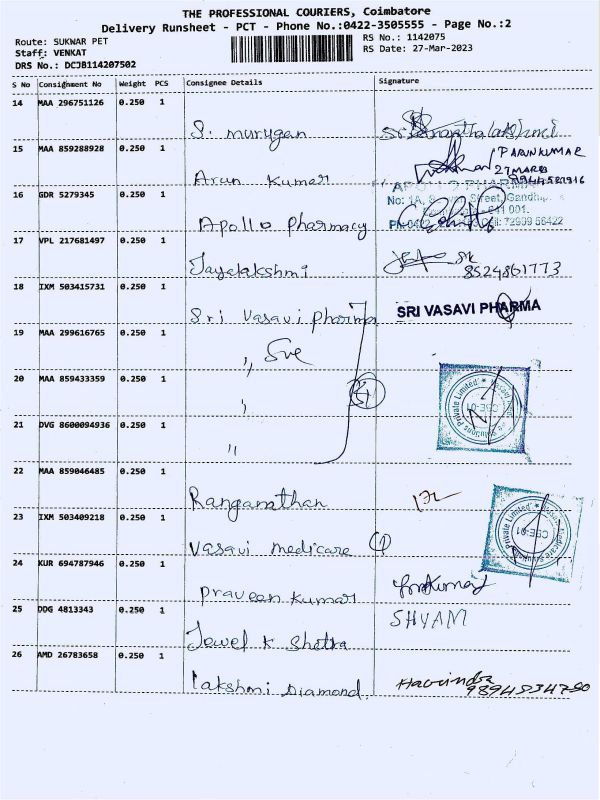 THE PROFESSIONAL COURIERS, Coimbatore
Delivery Runsheet - PCT - Phone No.:0422-3505555 - Page No.:2
Route: SUKWAR PET
RS No.: 1142075
Staff: VENKAT
RS Date: 27-Mar-2023
DRS No.: DCJB114207502
S No Consignment No Weight PCS Consignee Details Signature
14 MAA 296751126 0.250 1
S. Murugan
15 MAA 859288928 0.250 1
P ARUN KUMAR
Arun Kumar
16 GDR 5279345 0.250 1
APOLLO PHARMA
Apollo Pharmacy
17 VPL 217681497 0.250 1
Jayalakshmi 8524861773
18 IXM 503415731 0.250 1
Sri Vasavi pharma SRI VASAVI PHARMA
19 MAA 299616765 0.250 1
,,
20 MAA 859433359 0.250 1
,,
21 DVG 8600094936 0.250 1
,,
22 MAA 859046485 0.250 1
Ranganathan
23 IXM 503409218 0.250 1
Vasavi medicare
24 KUR 694787946 0.250 1
Praveen Kumar
25 DDG 4813343 0.250 1
SHYAM
Jewel K Shetra
26 AMD 26783658 0.250 1
Lakshmi Diamond